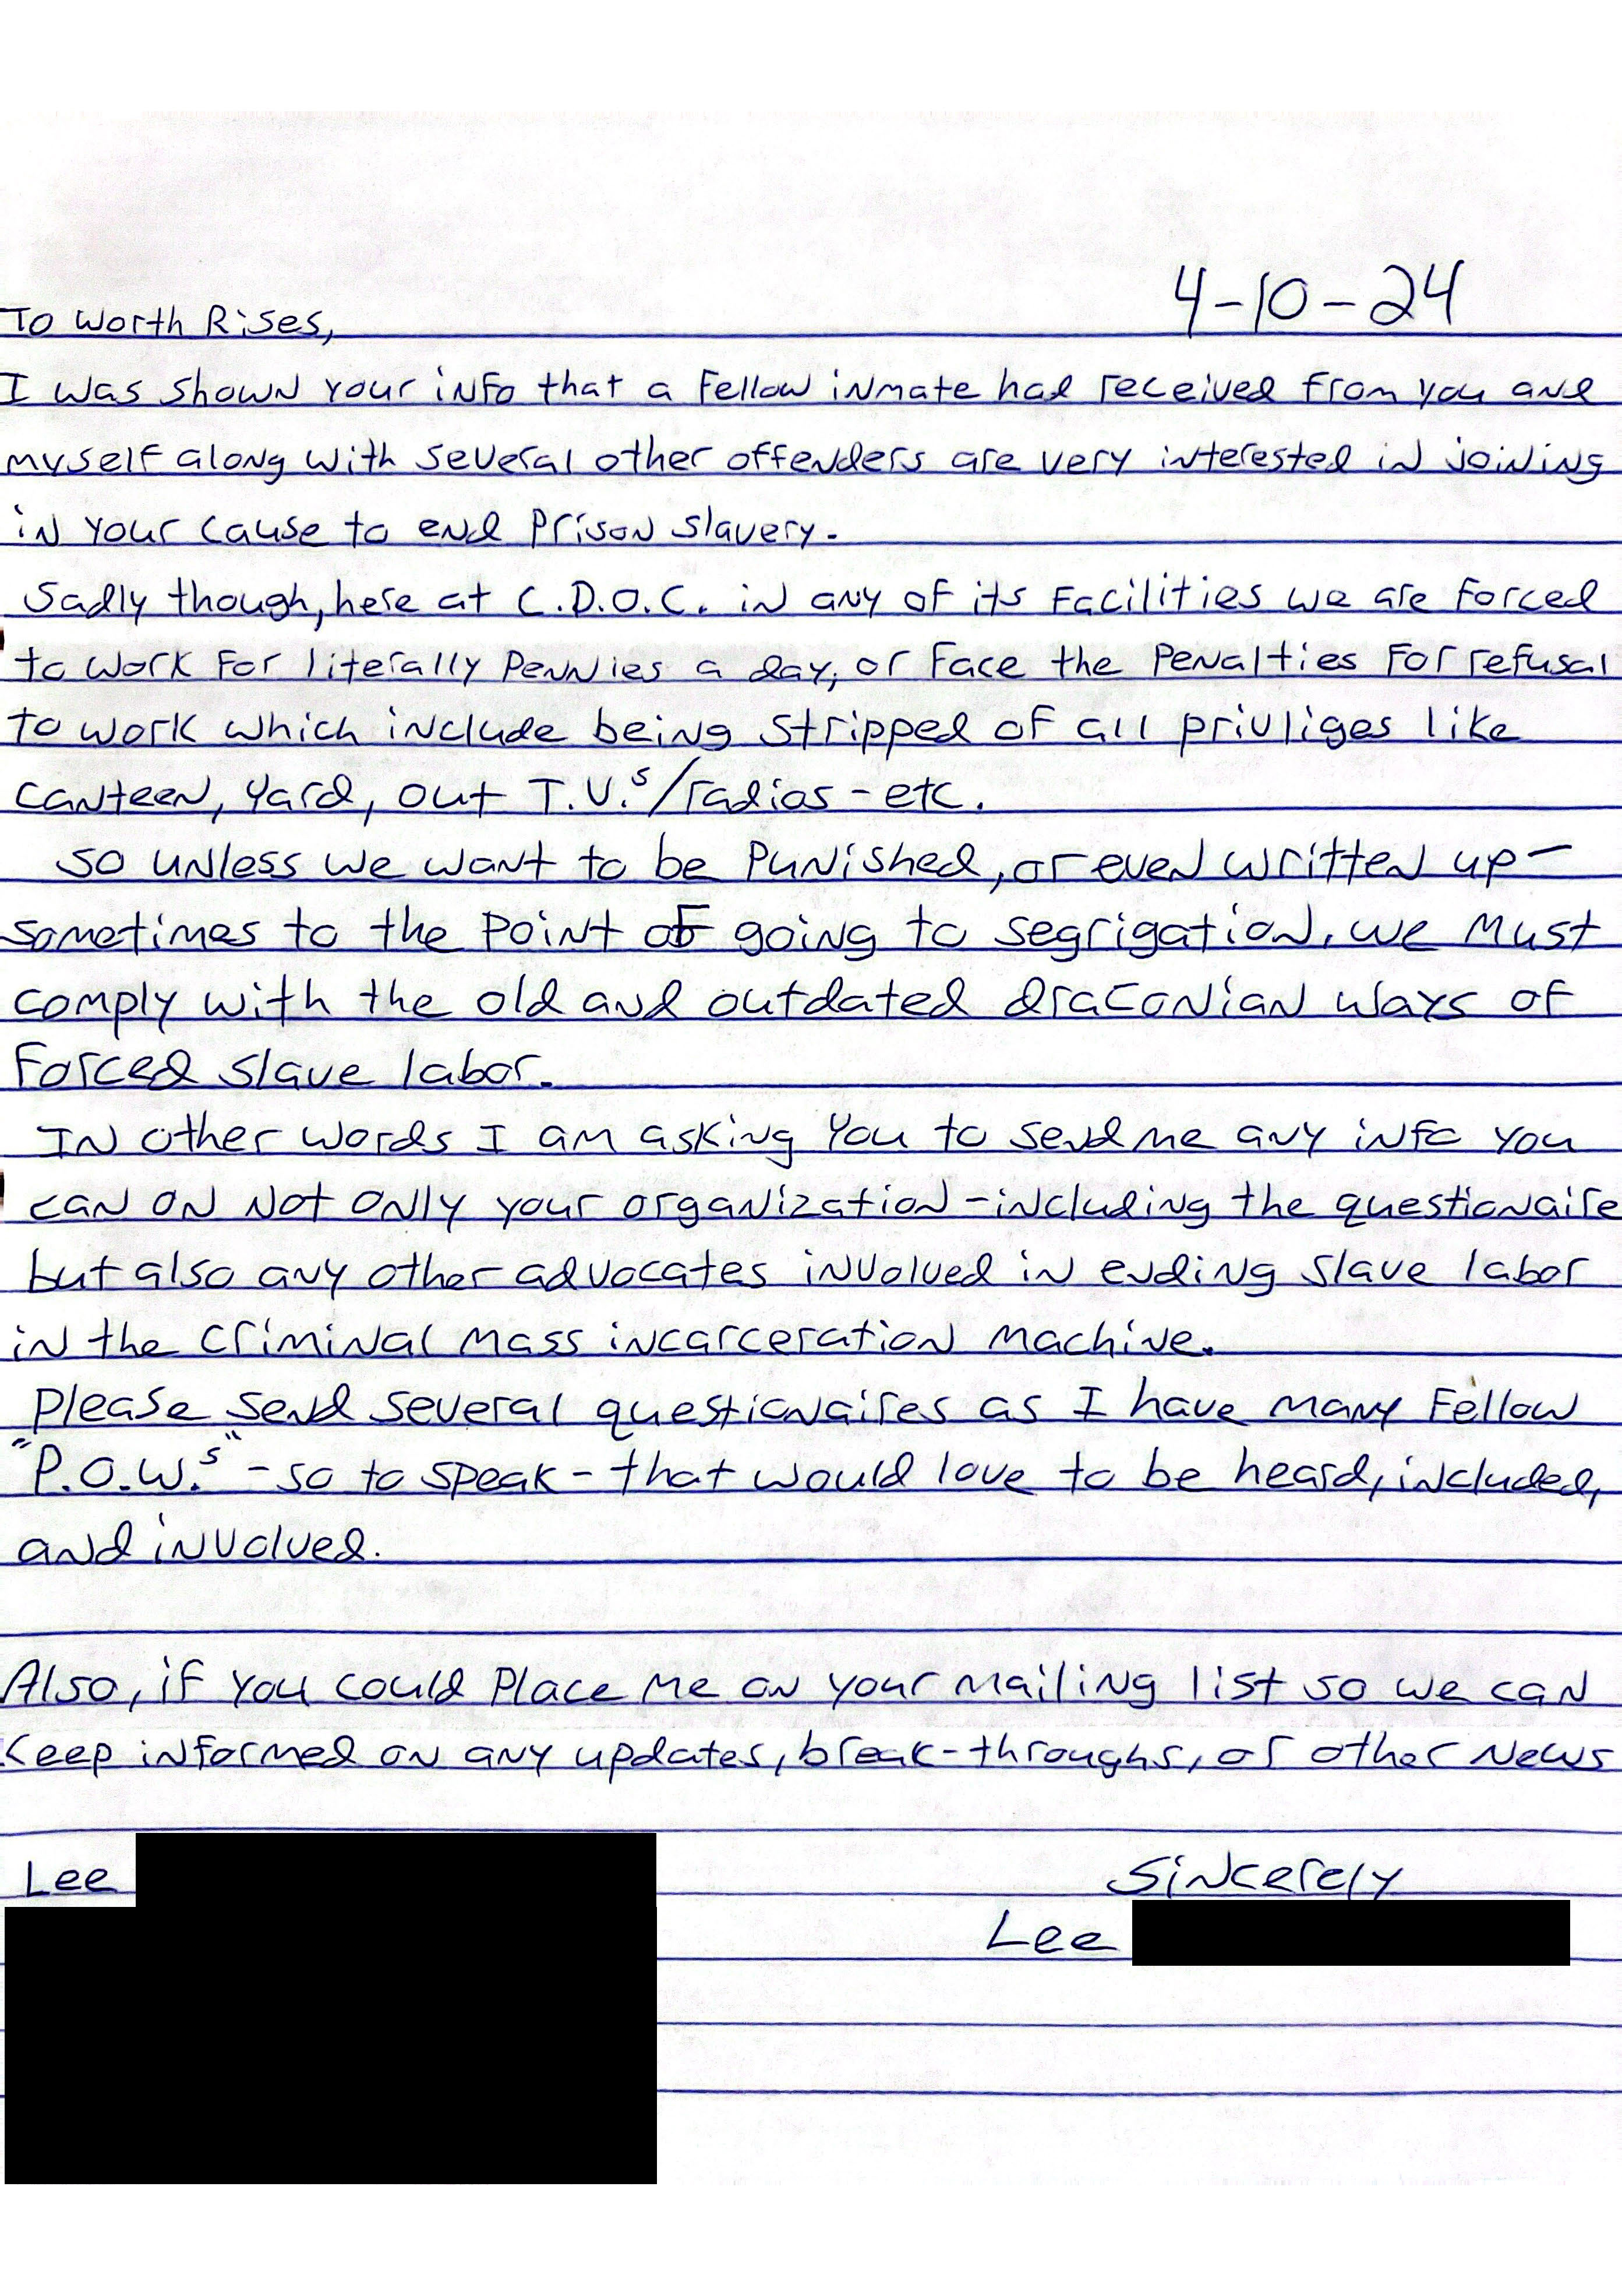 4-10-24
To Worth Rises,
I was shown your info that a fellow inmate had received from you and
myself along with several other offenders are very interested in joining
in your cause to end prison slavery.
Sadly though, here at C.D.O.C. in any of its facilities we are forced
to work for literally pennies a day, or face the penalties for refusal
to work which include being stripped of all priviliges like
canteen, yard, out T.V.s/radios - etc.
so unless we want to be punished, or even written up-
sometimes to the point of going to segrigation, we must
comply with the old and outdated draconian ways of
forced slave labor.
In other words I am asking you to send me any info you
can on not only your organization - including the questionaire
but also any other advocates involved in ending slave labor
in the criminal mass incarceration machine.
Please send several questionaires as I have many fellow
"P.O.W.s" - so to speak - that would love to be heard, included,
and involved.
Also, if you could place me on your mailing list so we can
keep informed on any updates, break-throughs, or other news
Sincerely
Lee
Lee